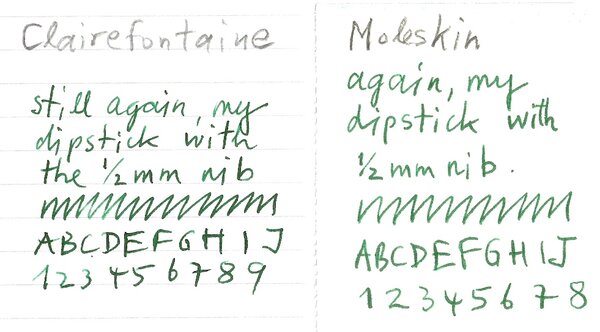 Clairefontaine
still again, my
dipstick with
the 1/2 mm nib
ABCDEFGHIJ
123456789
Moleskin
again, my
dipstick with
1/2 mm nib.
ABCDEFGHIJ
12345678